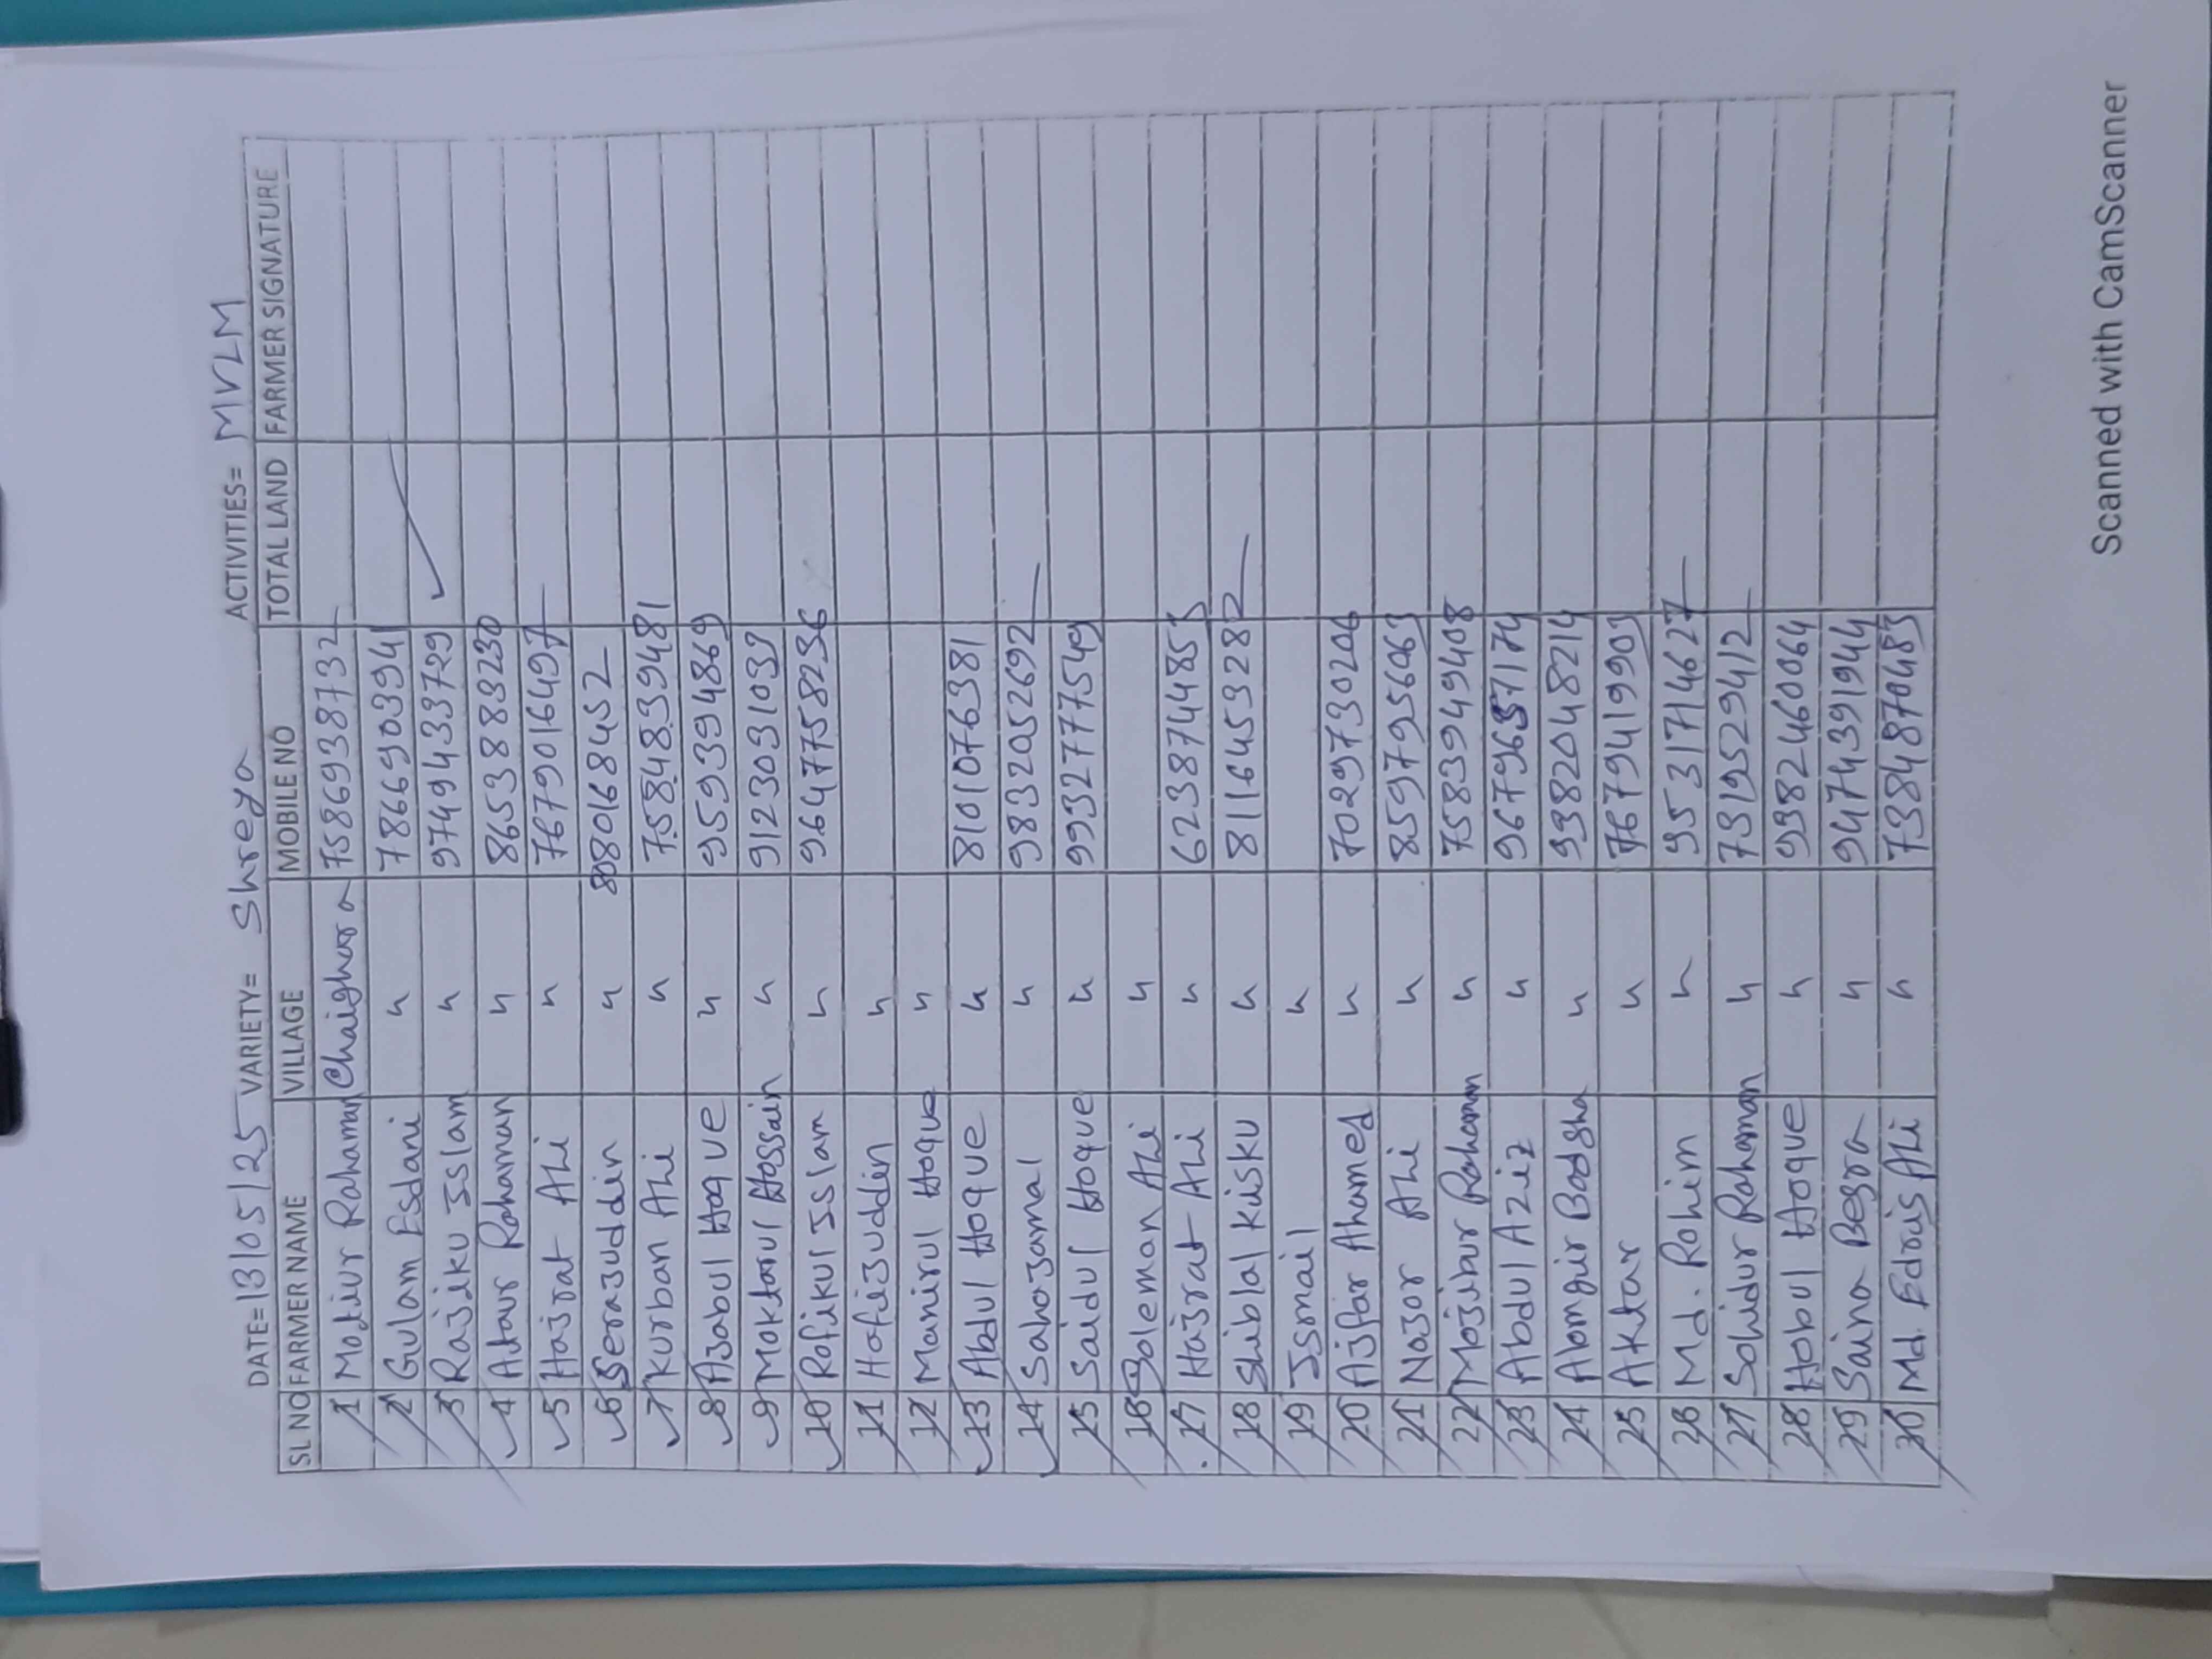 DATE= 13/05/25 VARIETY= Shreya ACTIVITIES= MVLM
SL NO FARMER NAME VILLAGE MOBILE NO TOTAL LAND FARMER SIGNATURE
1 Motiur Rahaman Chaighora 7586938732
2 Gulam Esdani " 7866903941
3 Rajiku Islam " 9749433729
4 Ataur Rahaman " 8653883230
5 Hajrat Ali " 7679016497
6 Serazuddin " 8080168452
7 Kurban Ali " 7584839481
8 Azabul Hoque " 959394869
9 Moktarul Hossain " 9123093103
10 Rofikul Islam " 9647758236
11 Hofizuddin "
12 Manirul Hoque "
13 Abdul Hoque " 8101076381
14 Sahozamal " 9832052692
15 Saidul Hoque " 9932777549
16 Soleman Ali "
17 Hazrat Ali " 6238744855
18 Shiblal Kisku " 8116453282
19 Ismail "
20 Ajfar Ahamed " 7029730206
21 Nazor Ali " 8597956063
22 Mojibur Rahaman " 7583949408
23 Abdul Aziz " 9679657174
24 Alomgir Badsha " 9382048214
25 Aktar " 7679419903
26 Md. Rohim " 9531714627
27 Sohidur Rahaman " 7319529412
28 Hobul Hoque " 9382460064
29 Saina Begra " 9474391944
30 Md. Edris Ali " 7384870483
Scanned with CamScanner